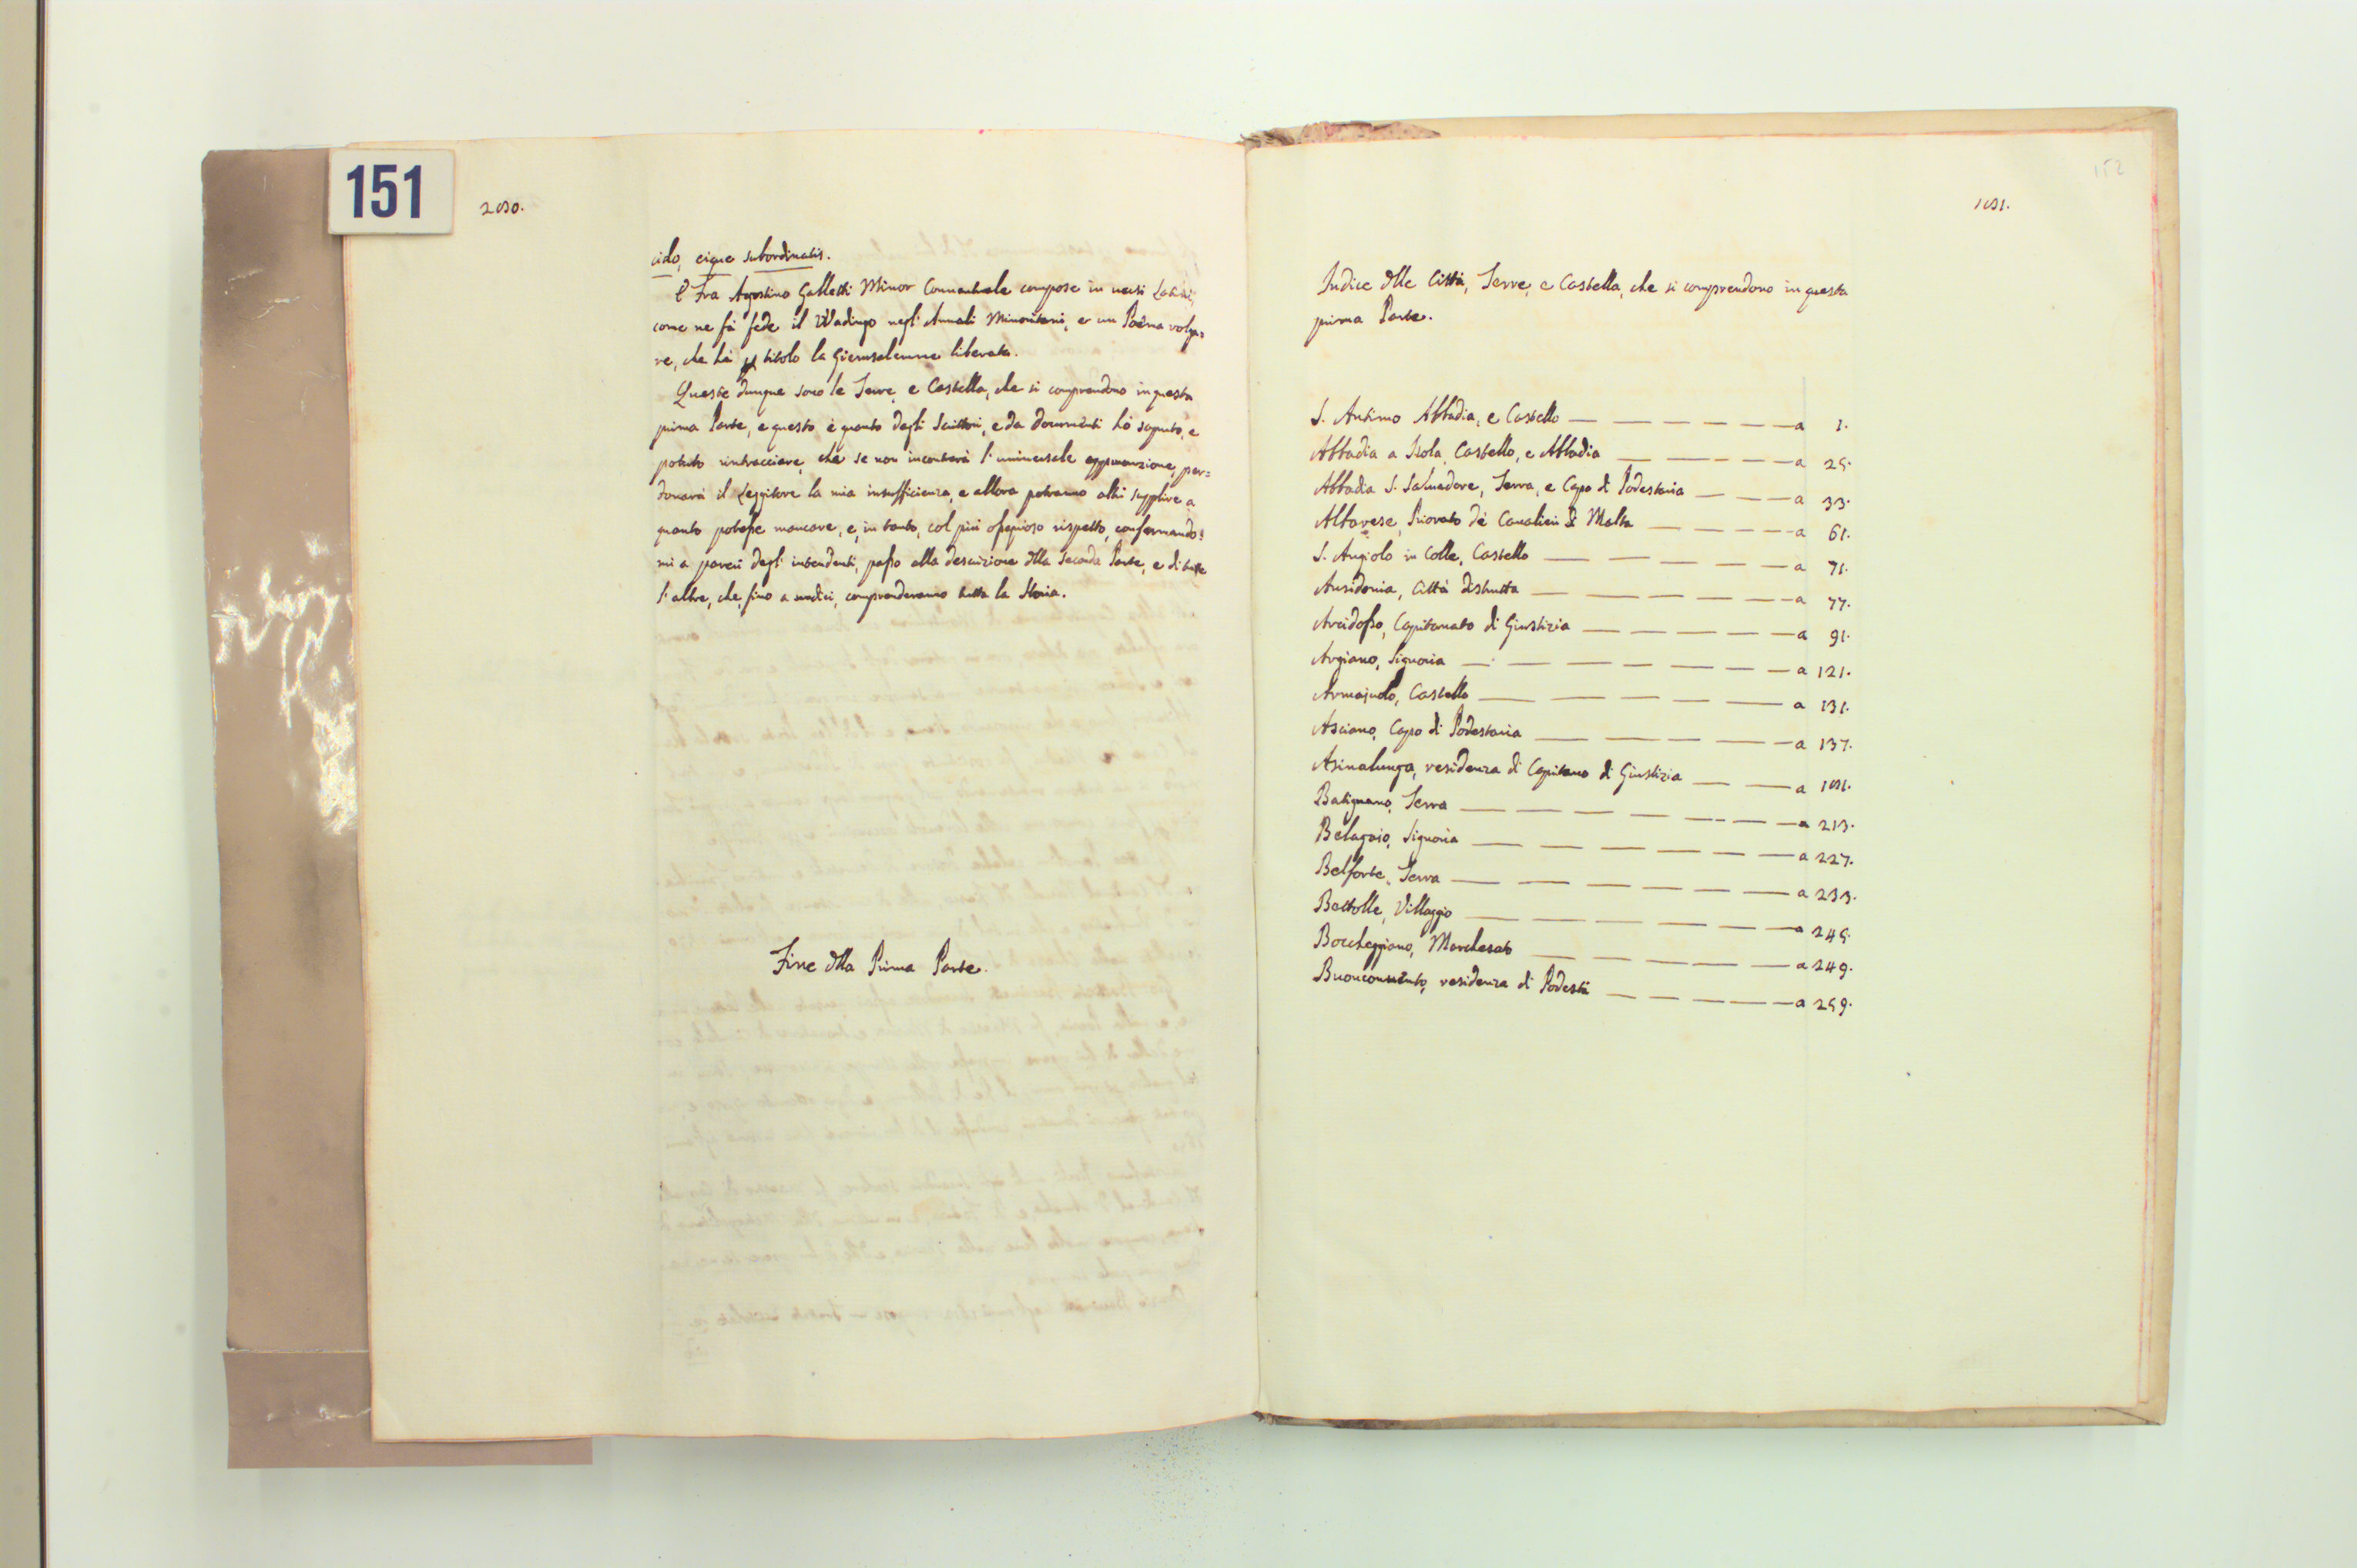 151
cido, eique subordinatis.
E Fra Agostino Galletti Minor Conventuale compose in versi Latini,
come ne fà fede il Wadingo negli Annali Minoritani, et un Poëma volga=
re, che hà titolo la Gierusalemme liberata.
Queste dunque sono le Terre, e Castella, che si comprendono in questa
prima Parte, e questo è quanto degli Scrittori, e da documenti hò saputo, e
potuto rintracciare, che se non incontrerà l'universale approvazione, per=
donarà il Leggitore la mia insufficienza, e allora potranno altri supplire a
quanto potesse mancare, e, in tanto, col più ossequioso rispetto, conformando=
mi a pareri degl'intendenti, passo alla descrizione della Seconda Parte, e di tutte
l'altre, che, fino a undici, comprenderanno tutta la Storia.
Fine della Prima Parte.
152
Indice delle Città, Terre, e Castella, che si comprendono in questa
prima Parte.
S. Antimo Abbadia, e Castello — — — — — — a 1.
Abbadia a Isola, Castello, e Abbadia — — — — — a 25.
Abbadia S. Salvadore, Terra, e Capo di Podestaria — — — a 33.
Albarese, Priorato dè Cavalieri di Malta — — — — — a 61.
S. Angiolo in Colle, Castello — — — — — — a 71.
Ansidonia, Città distrutta — — — — — — a 77.
Arcidosso, Capitanato di Giustizia — — — — — — a 91.
Argiano, Signoria — — — — — — — a 121.
Armajuolo, Castello — — — — — — — a 131.
Asciano, Capo di Podestaria — — — — — — a 137.
Asinalunga, residenza di Capitano di Giustizia — — a 181.
Batignano, Terra — — — — — — — — a 213.
Belagaio, Signoria — — — — — — — a 227.
Belforte, Terra — — — — — — — a 233.
Bettolle, Villaggio — — — — — — — a 245.
Boccheggiano, Marchesato — — — — — — a 249.
Buonconvento, residenza di Podestà — — — — — a 259.